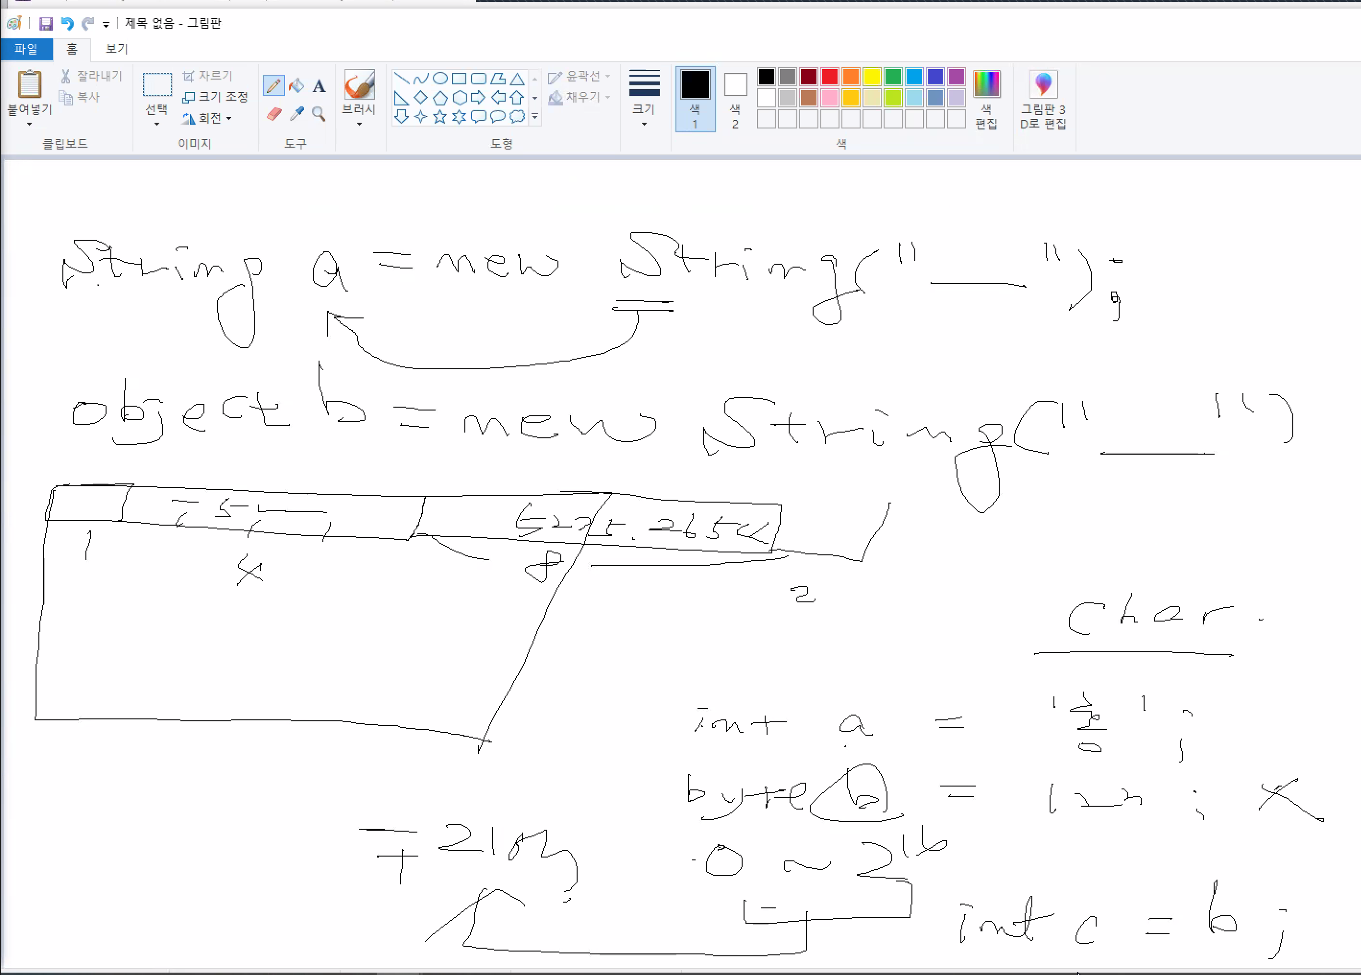 제목 없음 - 그림판
파일 홈 보기
붙여넣기 잘라내기 복사 클립보드
선택 자르기 크기 조정 회전 이미지
A 도구
브러시
윤곽선 채우기 도형
크기
색 1 색 2 색 편집 색
그림판 3D로 편집
String a = new String("___");
object b = new String("___")
1 4 8 2
char.
int a =
byte b = 122 ; X
0 ~ 2^16
int c = b ;